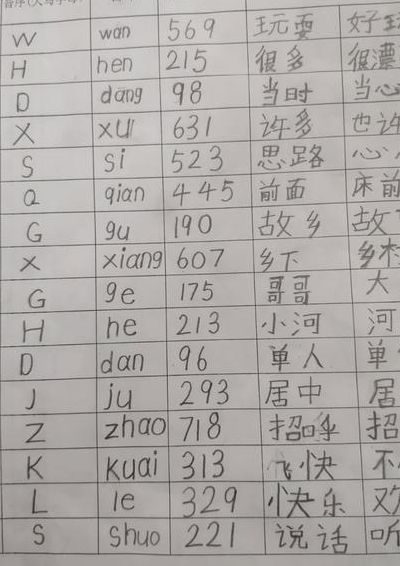 W wan 569 玩耍 好玩
H hen 215 很多 很漂
D dang 98 当时 当心
X xu 631 许多 也许
S si 523 思路 心
Q qian 445 前面 床前
G gu 190 故乡 故
X xiang 607 乡下 乡村
G ge 175 哥哥 大
H he 213 小河 河
D dan 96 单人 单
J ju 293 居中 居
Z zhao 718 招呼 招
K kuai 313 飞快 不
L le 329 快乐 欢
S shuo 221 说话 听